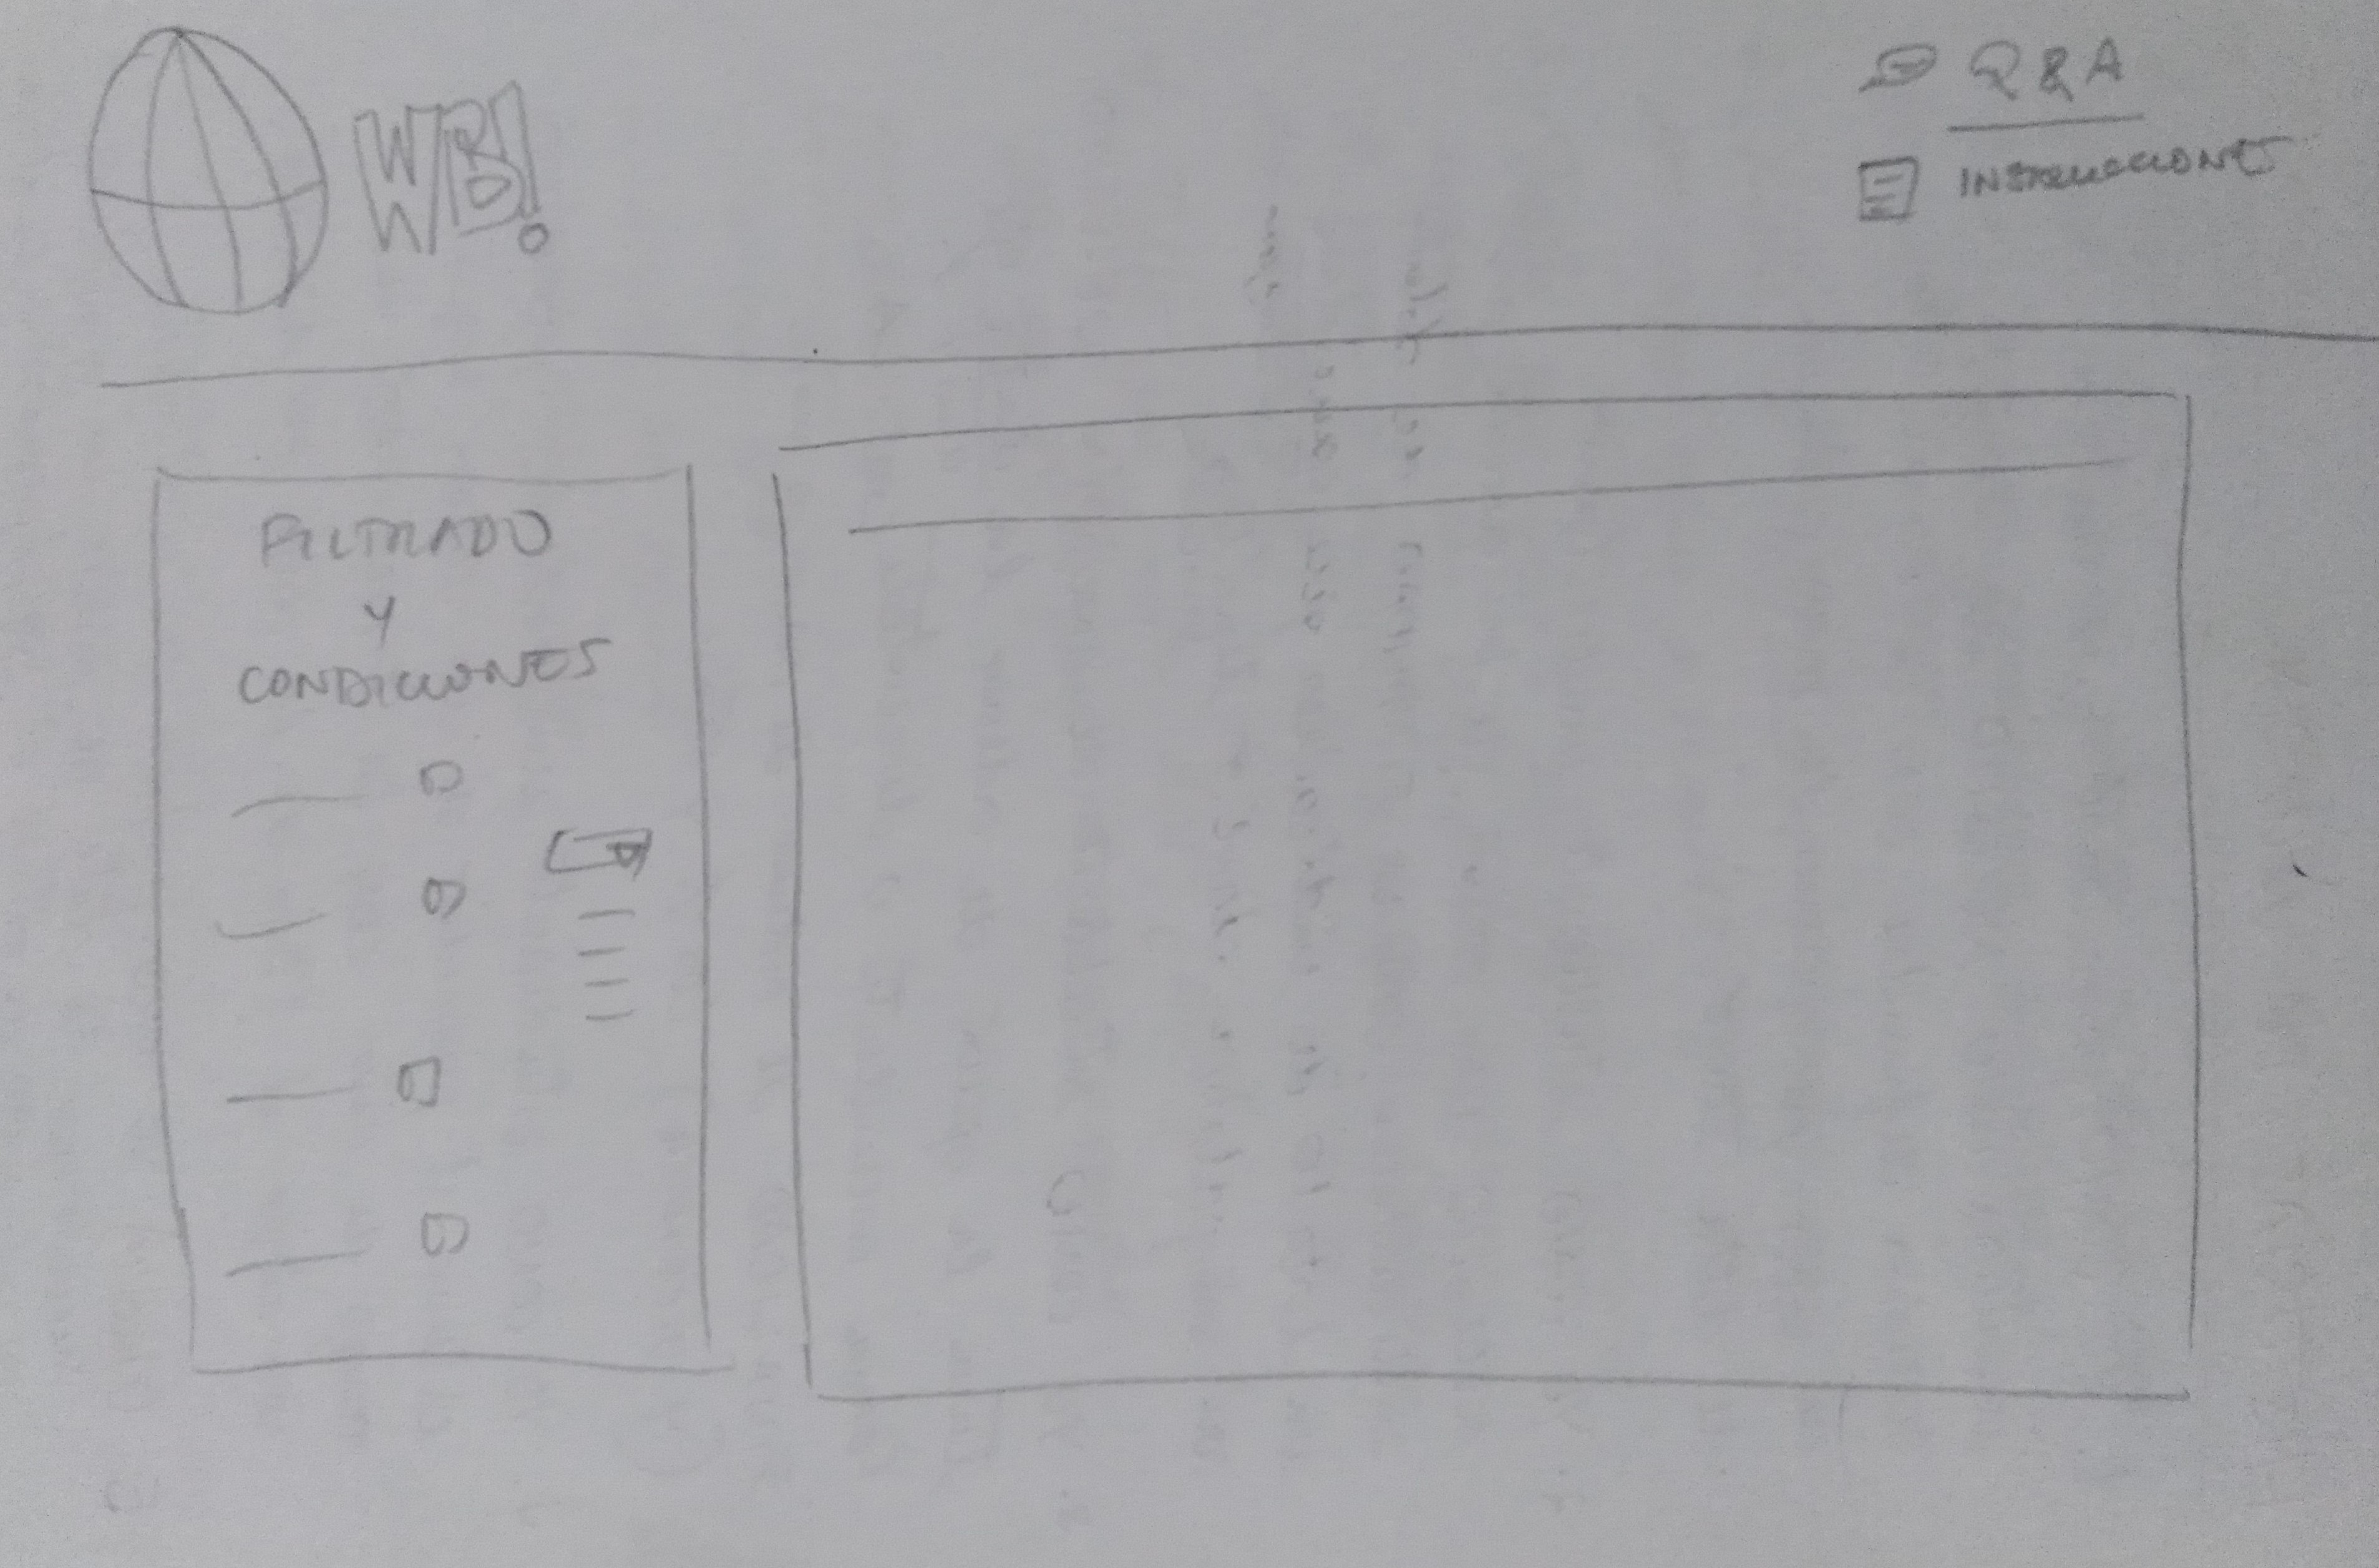 WB!
Q & A
INSTRUCCIONES
FILTRADO
Y
CONDICIONES